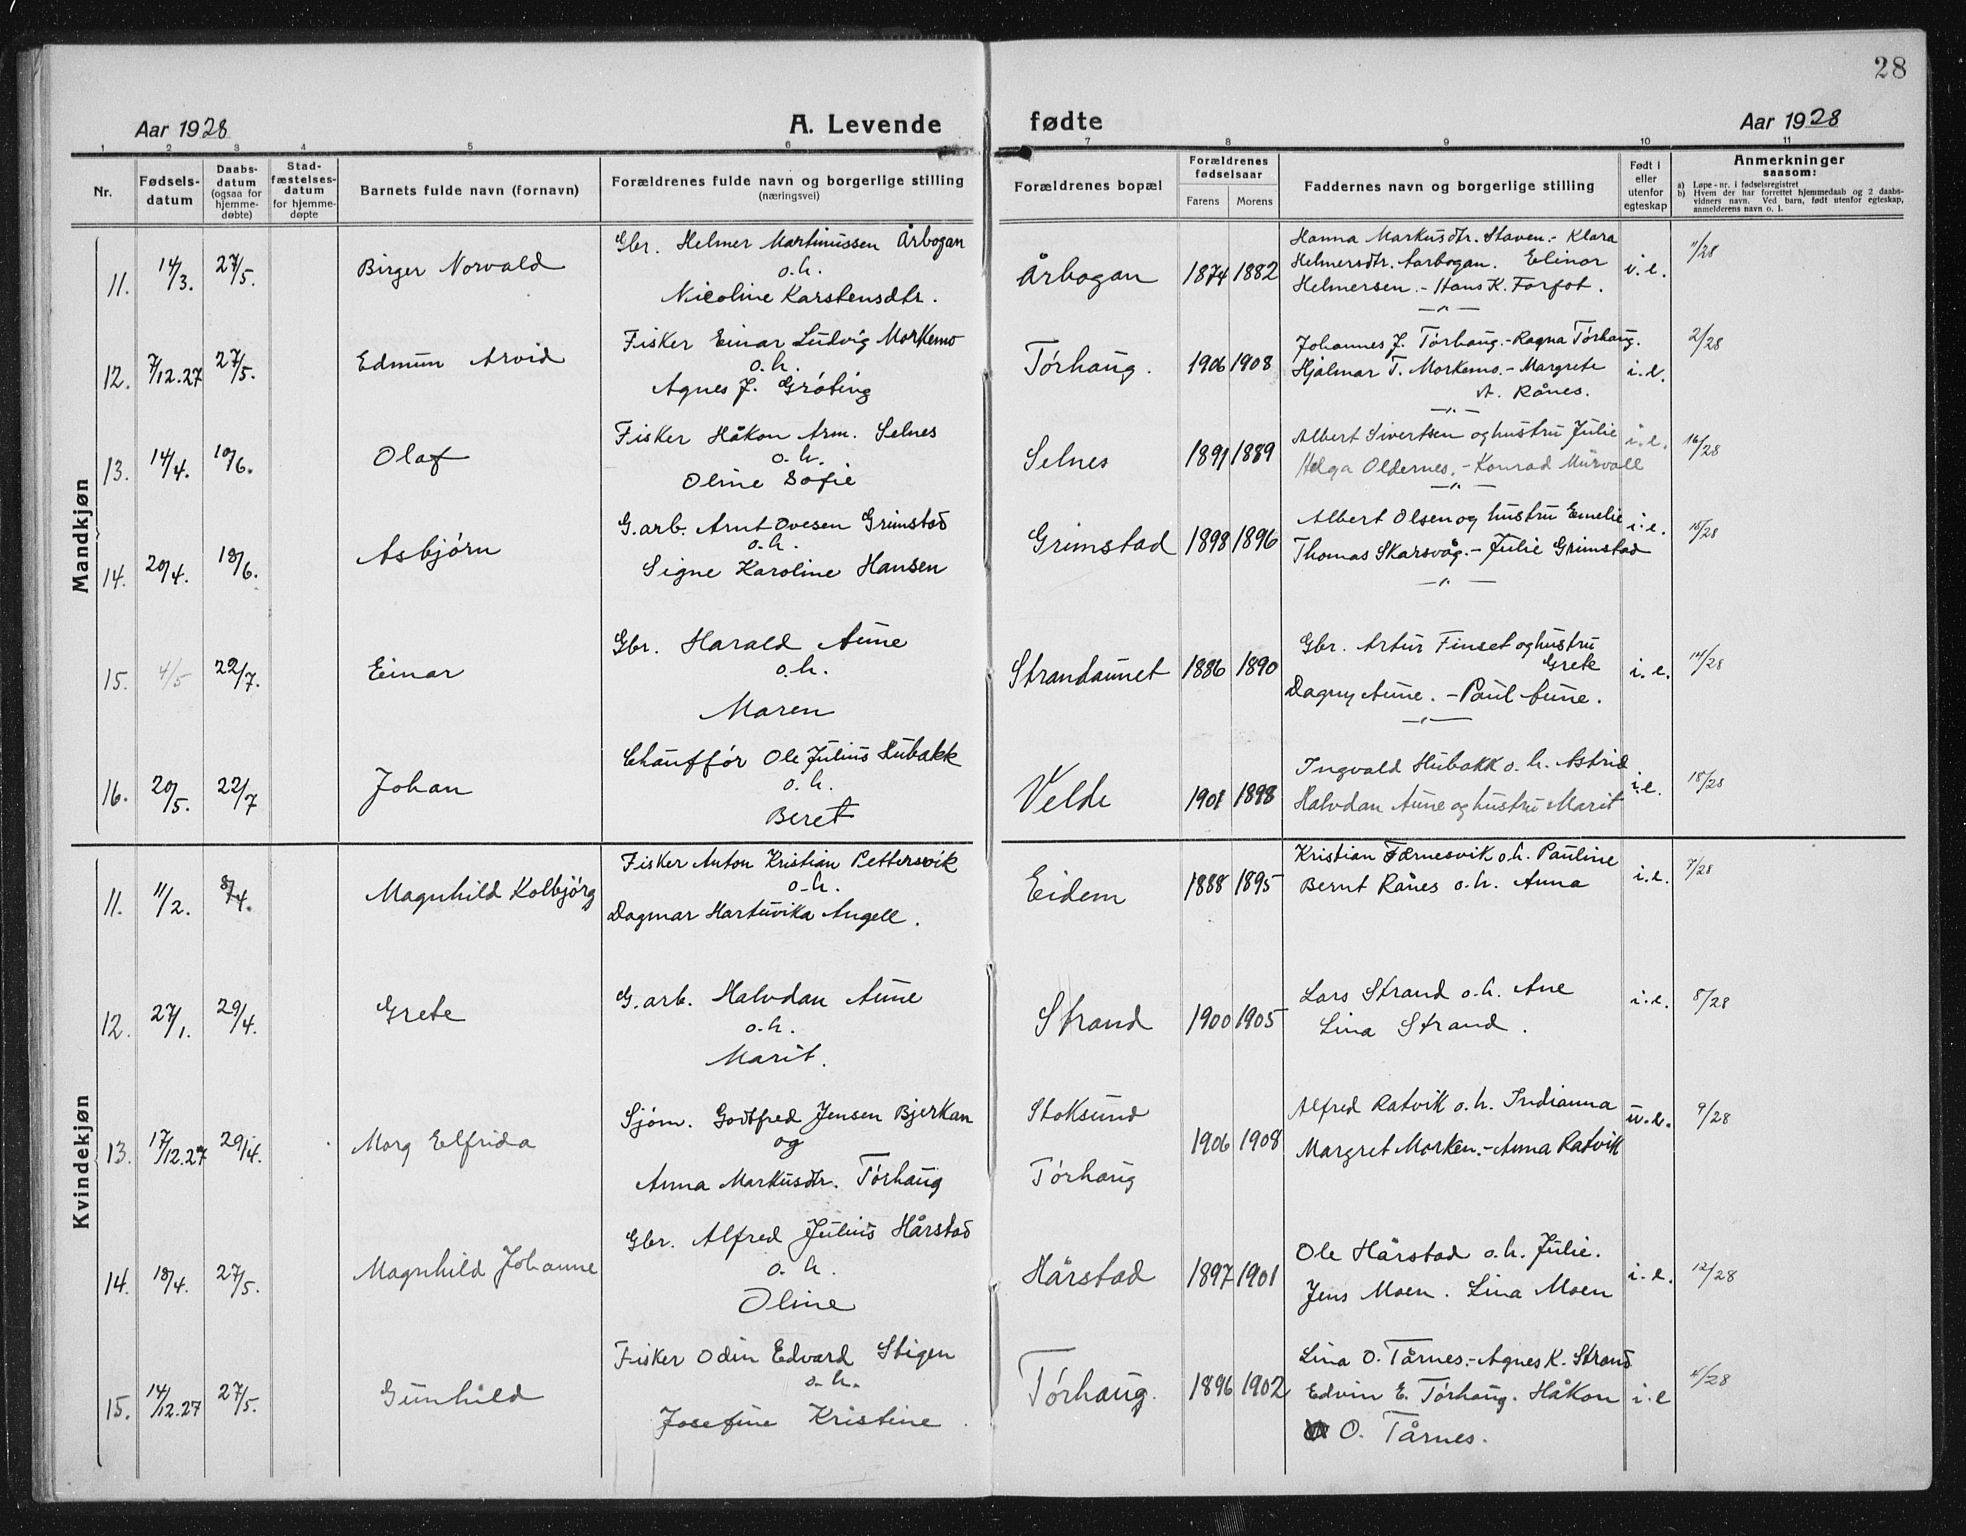 28
Aar 1928
A. Levende fødte
Aar 1928
1 2 3 4 5 6 7 8 9 10 11
Nr.
Fødsels-
datum
Daabs-
datum
(ogsaa for
hjemme-
døbte)
Stad-
fæstelses-
datum
for hjemme-
døpte
Barnets fulde navn (fornavn)
Forældrenes fulde navn og borgerlige stilling
(næringsvei)
Forældrenes bopæl
Forældrenes
fødselsaar
Farens
Morens
Faddernes navn og borgerlige stilling
Født i
eller
utenfor
egteskap
Anmerkninger
saasom:
a) Løpe-nr. i fødselsregistret
b) Hvem der har forrettet hjemmedaab og 2 daabs-
vidners navn. Ved barn, født utenfor egteskap,
anmelderens navn o. l.
Mandkjøn
11. 14/3. 27/5. Birger Norvald
Gbr. Helmer Martinussen Årbogan
o.h.
Nicoline Karstensdtr.
Årbogan 1874 1882
Hanna Markusdtr. Staven.- Klara
Helmersdtr. Aarbogan. Elinor
Helmersen.- Hans K. Forfot.
—"—
i.e. 11/28
12. 7/12.27 27/5. Edmun Arvid
Fisker Einar Ludvig Morkemo
o.h.
Agnes J. Grøting
Tørhaug. 1906 1908
Johannes J. Tørhaug.-Ragna Tørhaug.
Hjalmar T. Morkemo.- Margrete
A. Rånes.
—"—
i.e. 2/28
13. 14/4. 10/6. Olaf
Fisker Håkon Arm. Selnes
o.h.
Oline Sofie
Selnes 1891 1889
Albert Sivertsen og hustru Julie
Helga Oldernes.- Konrad Murvoll
—"—
i.e. 16/28
14. 20/4. 18/6. Asbjørn
G.arb. Arnt Ovesen Grimstad
o.h.
Signe Karoline Hansen
Grimstad 1898 1896
Albert Olsen og hustru Emelie
Thomas Skarsvåg.- Julie Grimstad
—"—
i.e. 15/28
15. 4/5 22/7. Einar
Gbr. Harald Aune
o.h.
Maren
Strandaunet 1886 1890
Gbr. Artur Finset og hustru
Grete
Dagny Aune.- Paul Aune.
—"—
i.e. 14/28
16. 20/5. 22/7 Johan
Chauffør Ole Julius Hubakk
o.h.
Beret
Velde 1901 1898
Ingvald Hubakk o.h. Astrid
Halvdan Aune og hustru Marit
i.e. 18/28
Kvindekjøn
11. 11/2. 8/4. Magnhild Kolbjørg
Fisker Anton Kristian Pettersvik
o.h.
Dagmar Hartuvika Angell.
Eidem 1888 1895
Kristian Færnesvik o.h. Pauline
Bernt Rånes o.h. Anna
i.e. 7/28
12. 27/1. 29/4. Grete
G.arb. Halvdan Aune
o.h.
Marit.
Strand 1900 1905
Lars Strand o.h. Ane
Lina Strand.
i.e. 8/28
13. 17/12.27 29/4. Morg Elfrida
Sjøm. Godtfred Jensen Bjerkan
og
Anna Markusdtr. Tørhaug
Stoksund
Tørhaug
1906 1908
Alfred Ratvik o.h. Indianna
Margret Morken.-Anna Ratvik
u.e. 9/28
14. 18/4. 27/5. Magnhild Johanne
Gbr. Alfred Julius Hårstad
o.h.
Oline
Hårstad 1897 1901
Ole Hårstad o.h. Julie.
Jens Moen. Lina Moen
i.e. 12/28
15. 14/12.27 27/5. Gunhild
Fisker Odin Edvard Stigen
o.h.
Josefine Kristine
Tørhaug. 1896 1902
Lina O. Tårnes.-Agnes K. Strand
Edvin E. Tørhaug. Håkon
O. Tårnes.
i.e